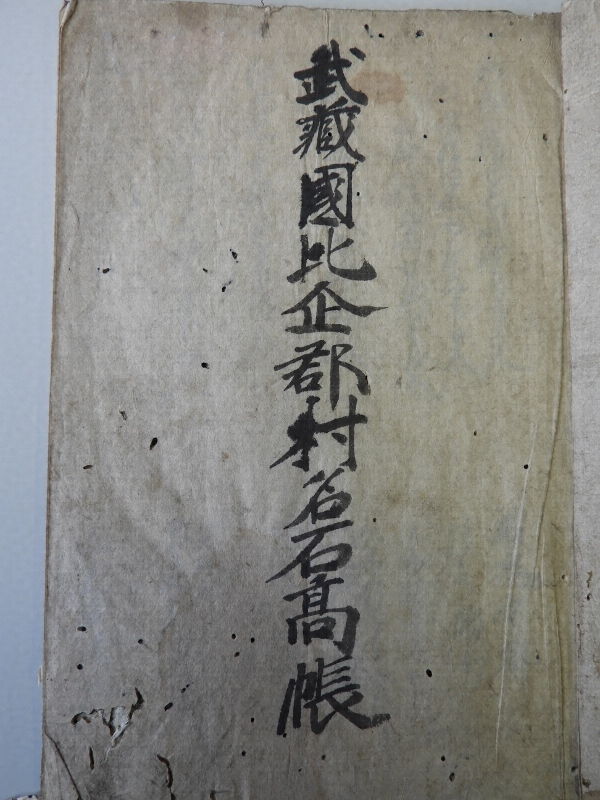 武藏國比企郡村名石髙帳